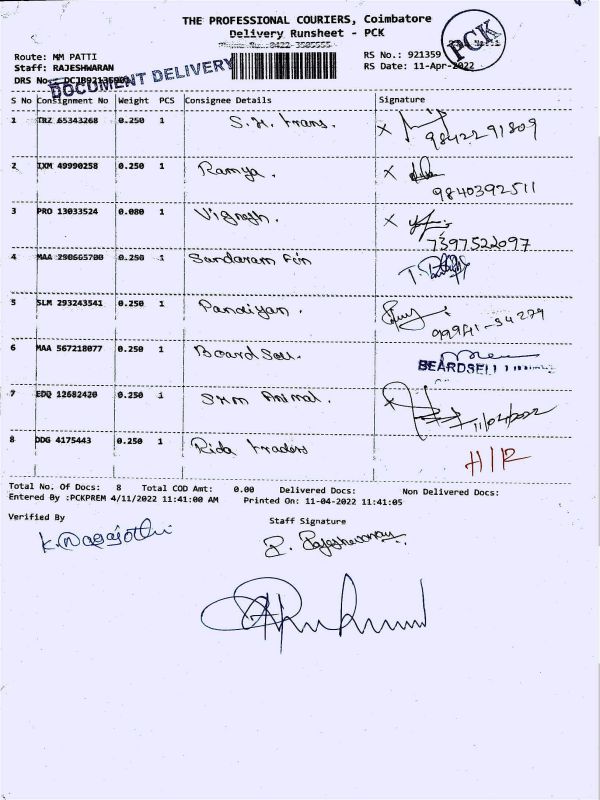 THE PROFESSIONAL COURIERS, Coimbatore
Delivery Runsheet - PCK
PCK
Route: MM PATTI
RS No.: 921359
Staff: RAJESHWARAN
RS Date: 11-Apr-2022
DRS No.
DOCUMENT DELIVERY
S No Consignment No Weight PCS Consignee Details Signature
1 TRZ 65343268 0.250 1 S.H. trans.
x 9842291809
2 IXM 49990258 0.250 1 Ramya.
x 9840392511
3 PRO 13033524 0.080 1 Vignesh.
x 7397522097
4 MAA 290665700 0.250 1 Sundaram Fin
5 SLM 293243541 0.250 1 Pandiyan.
99941-54279
6 MAA 567218077 0.250 1
BEARDSELL
7 EDQ 12682420 0.250 1 SKM Animal.
x 11/04/2022
8 DDG 4175443 0.250 1 Rida traders
H/R
Total No. Of Docs: 8 Total COD Amt: 0.00 Delivered Docs: Non Delivered Docs:
Entered By :PCKPREM 4/11/2022 11:41:00 AM Printed On: 11-04-2022 11:41:05
Verified By Staff Signature
K. Nagajothi